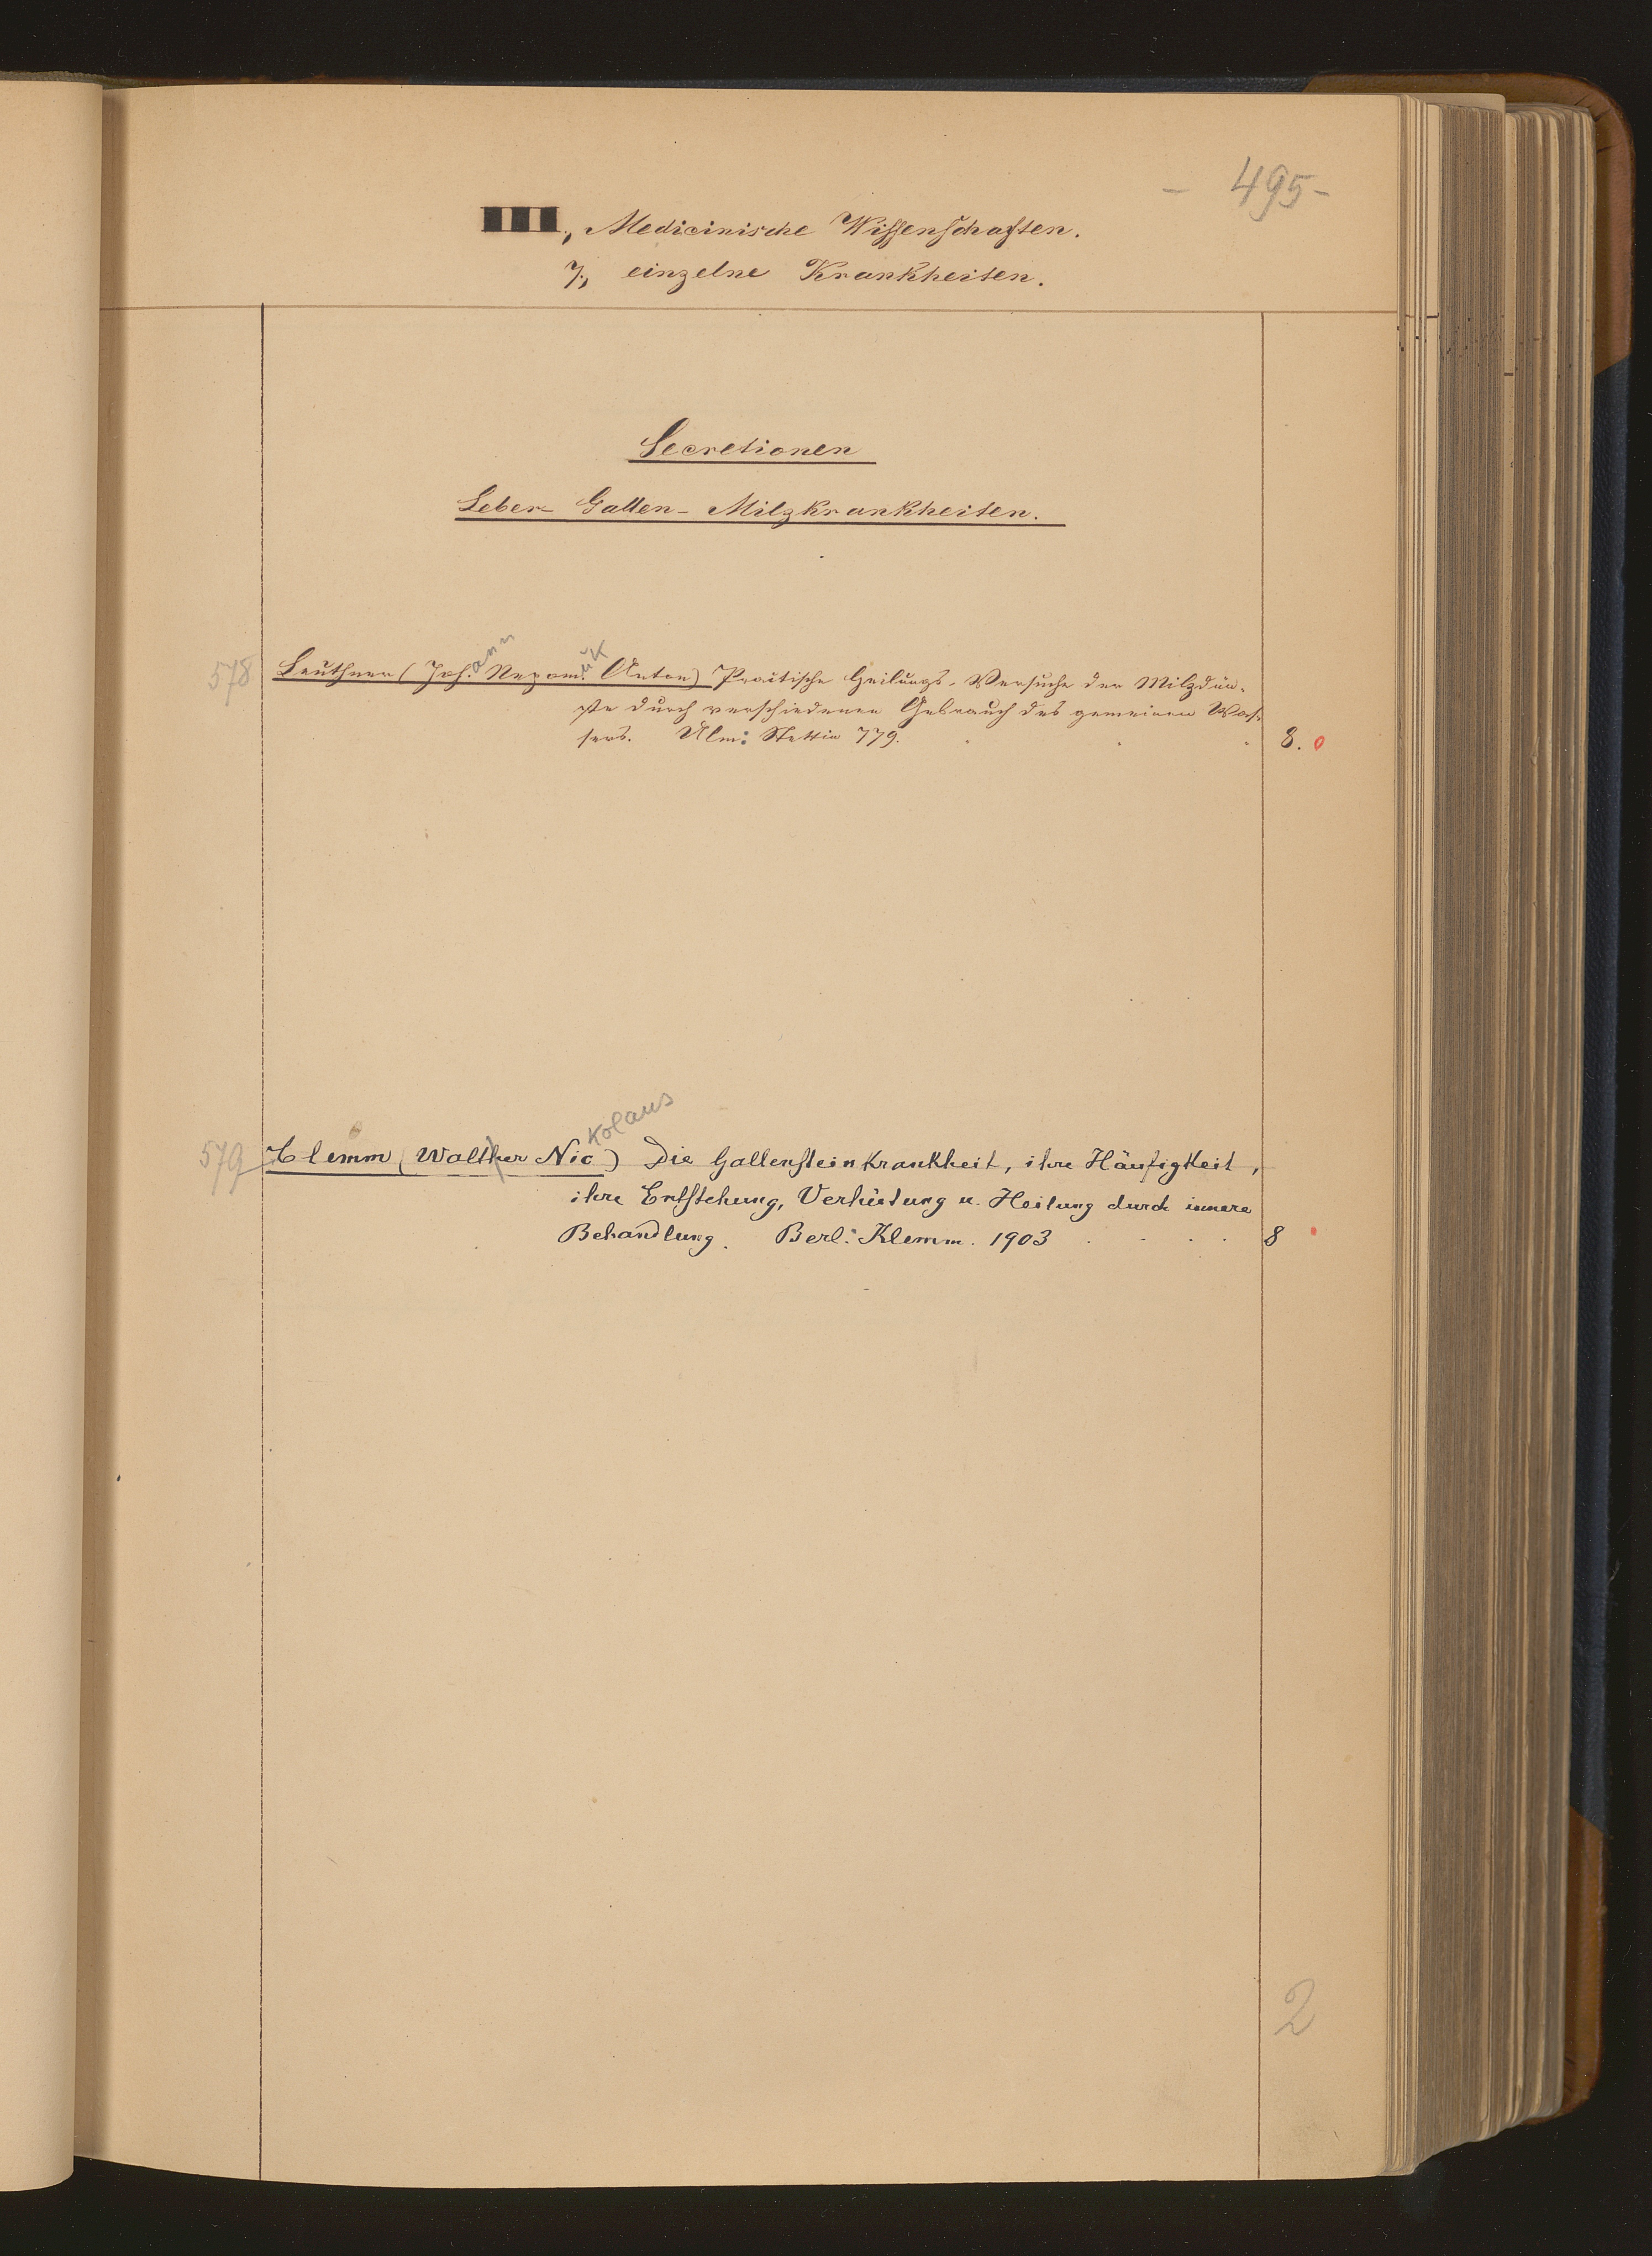 - 495 -
III., Medicinische Wissenschaften.
7., einzelne Krankheiten.
Secretionen
Leber- Gallen- Milzkrankheiten.
578 Leuthner (Joh.ann Nepom.uk Anton) Practische Heilungs-Versuche der Milzdün-
ste durch verschiedenen Gebrauch des gemeinen Was-
sers. Ulm: Stettin 779. 8. 0
579 Clemm (Walther Nic kolaus) Die Gallensteinkrankheit, ihre Häufigkeit,
ihre Entstehung, Verhütung u. Heilung durch innere
Behandlung. Berl: Klemm. 1903 8
2